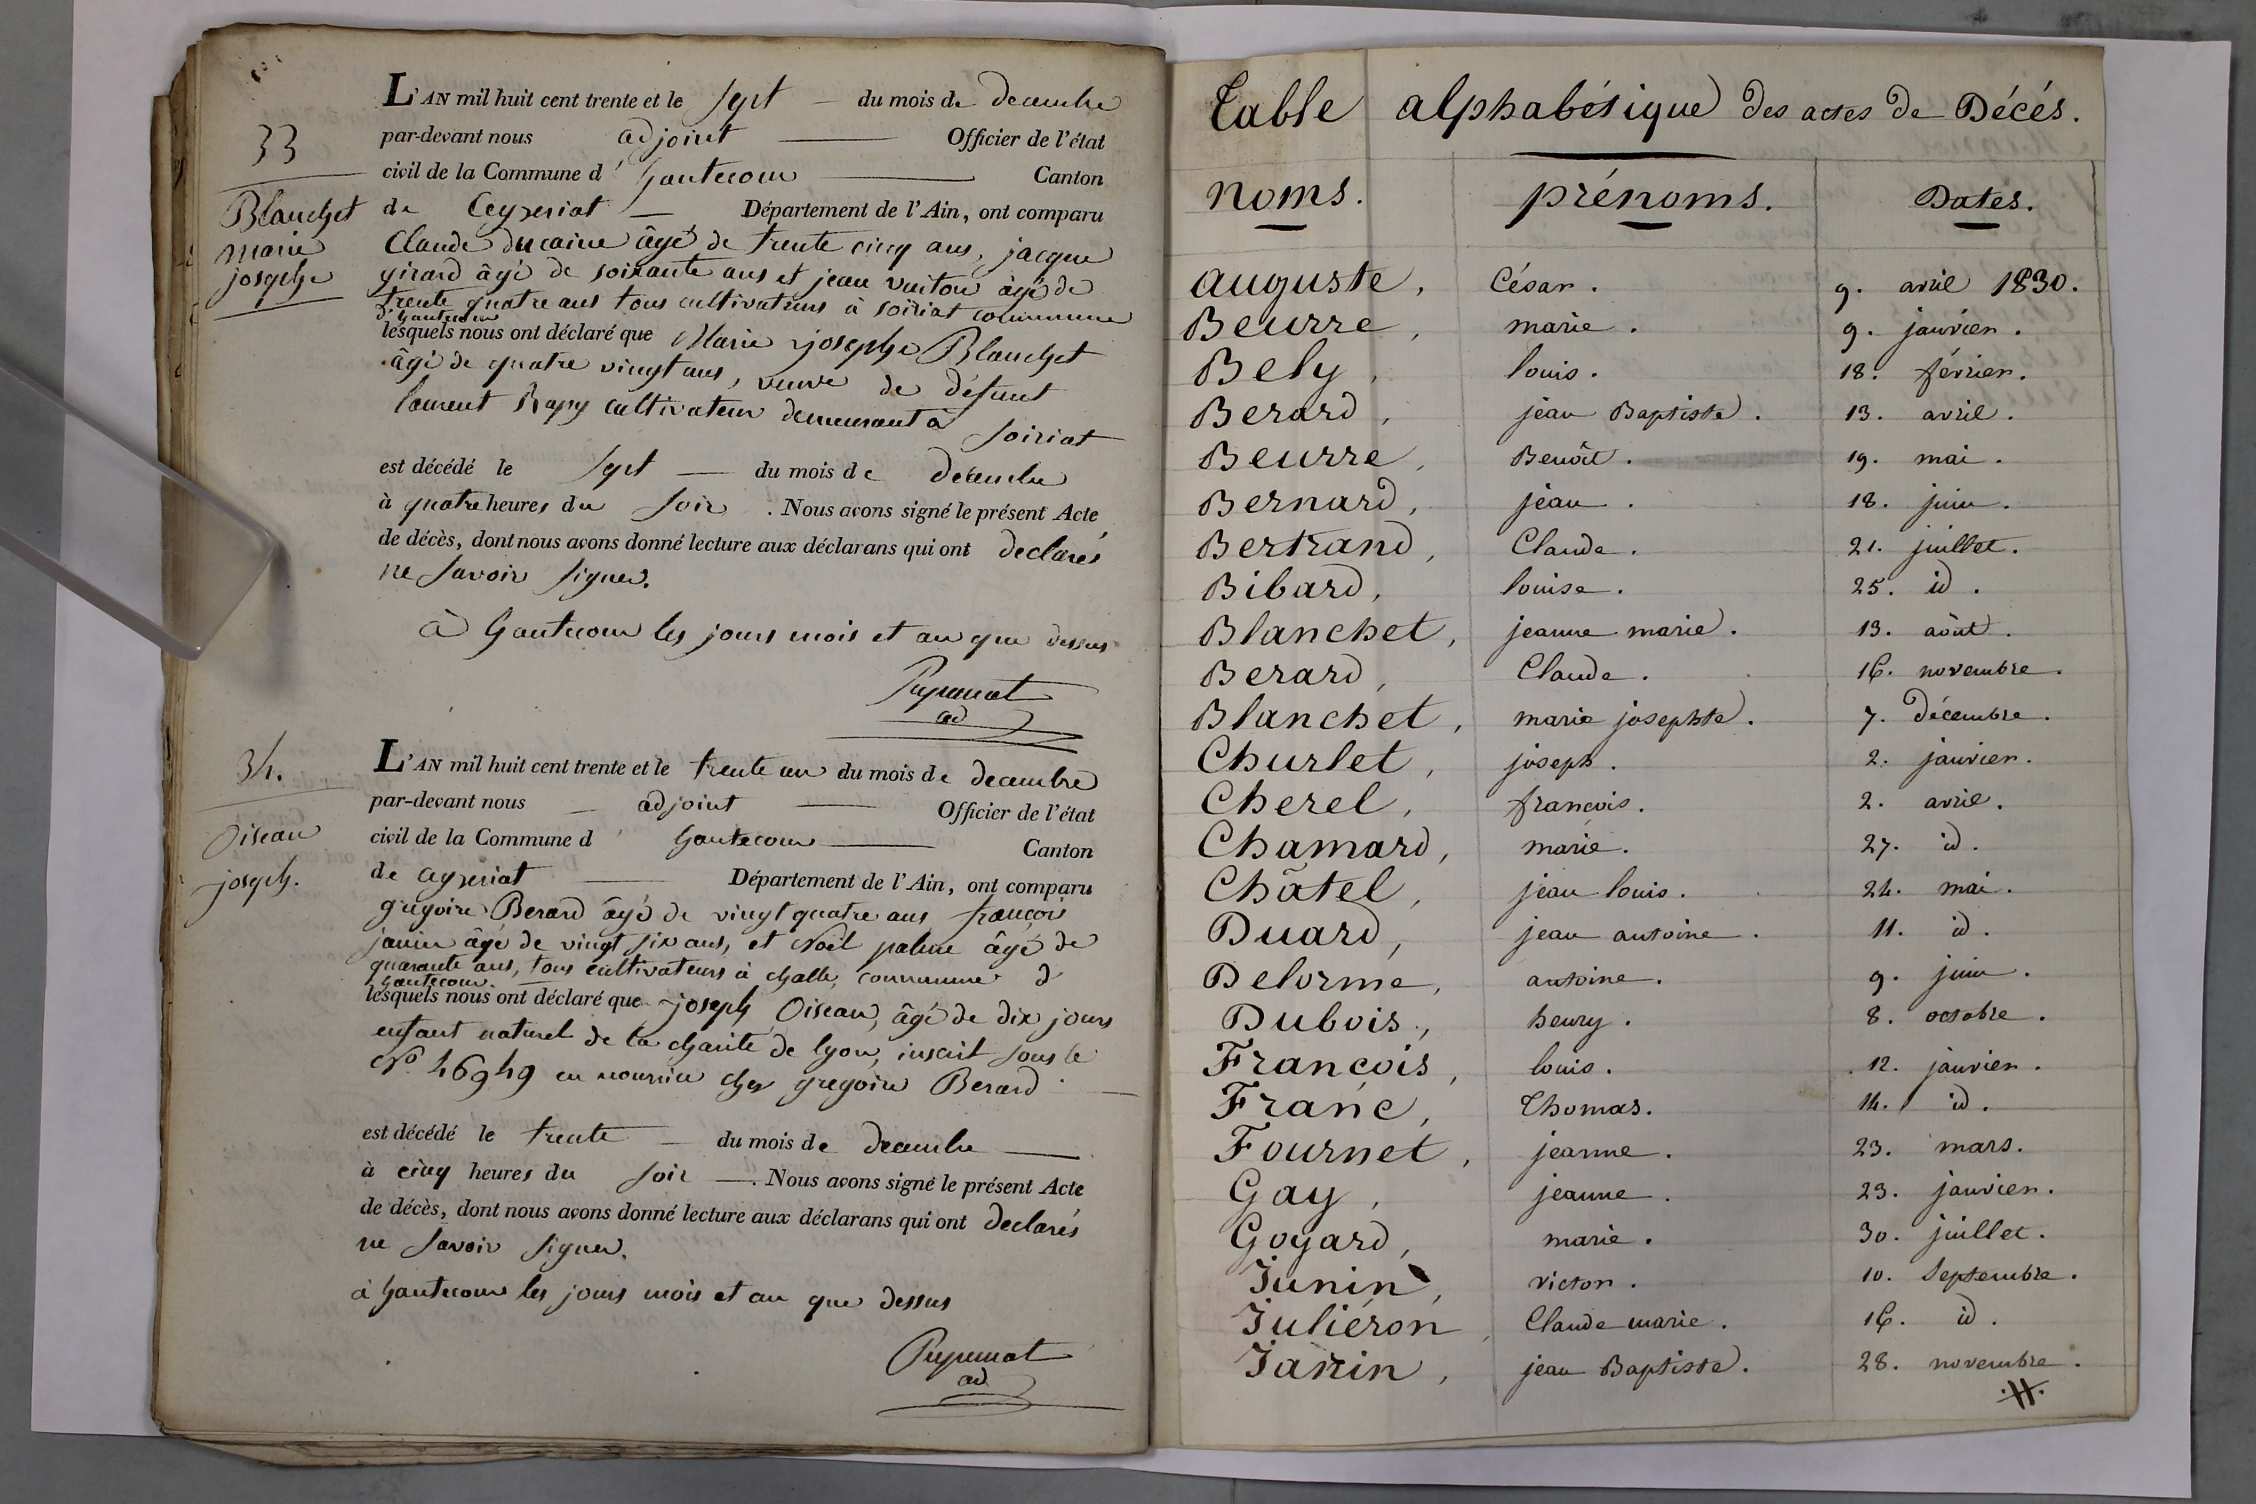 33
Blanchet
marie
josephe
L'AN mil huit cent trente et le sept du mois de decembre
par-devant nous adjoint Officier de l'état
civil de la Commune d' hautecour Canton
de Ceyzeriat Département de l'Ain, ont comparu
Claude ducaine âgé de trente cinq ans, jacque
girard âgé de soixante ans et jean vuiton âgé de
trente quatre ans tous cultivateurs à soiriat commune
d'hautecour
lesquels nous ont déclaré que Marie josephe Blanchet
âgé de quatre vingt ans, veuve de défunt
laurent Rapy cultivateur demeurant à soiriat
est décédé le sept du mois de decembre
à quatre heures du soir . Nous avons signé le présent Acte
de décès, dont nous avons donné lecture aux déclarans qui ont declarés
ne savoir signer.
à hautecour les jours mois et an que dessus
ad
34.
Oiseau
joseph.
L'AN mil huit cent trente et le trente un du mois de decembre
par-devant nous adjoint Officier de l'état
civil de la Commune d' hautecour Canton
de ceyzeriat Département de l'Ain, ont comparu
gregoire Berard âgé de vingt quatre ans françois
janin âgé de vingt six ans, et Noël palme âgé de
quarante ans, tous cultivateurs à challe, commune d'
hautecour.
lesquels nous ont déclaré que joseph Oiseau, âgé de dix jours
enfant naturel de la charité de lyon, inscrit sous le
N° 46949 en nourrice chez gregoire Berard.
est décédé le trente du mois de decembre
à cinq heures du soir . Nous avons signé le présent Acte
de décès, dont nous avons donné lecture aux déclarans qui ont declarés
ne savoir signer.
à hautecour les jours mois et an que dessus
ad
Table alphabétique des actes de Décés.
noms. prénoms. Dates.
auguste, César. 9. avril 1830.
Beurre, marie. 9. janvier.
Bely, louis. 18. février.
Berard, jean Baptiste. 13. avril.
Beurre, Benôit. 19. mai.
Bernard, jean. 18. juin.
Bertrand, Claude. 21. juillet.
Bibard, louise. 25. id.
Blanchet, jeanne marie. 13. aôut.
Berard, Claude. 16. novembre.
Blanchet, marie josephte. 7. décembre.
Churlet, joseph. 2. janvier.
Cherel, francois. 2. avril.
Chamard, marie. 27. id.
Châtel, jean louis. 24. mai.
Duard, jean antoine. 11. id.
Delorme, antoine. 9. juin.
Dubois, henry. 8. octobre.
François, louis. 12. janvier.
Franc, Thomas. 14. id.
Fournet, jeanne. 23. mars.
Gay, jeanne. 23. janvier.
Goyard, marie. 30. juillet.
Junin, victor. 10. Septembre.
Juliéron, Claude marie. 16. id.
Janin, jean Baptiste. 28. novembre.